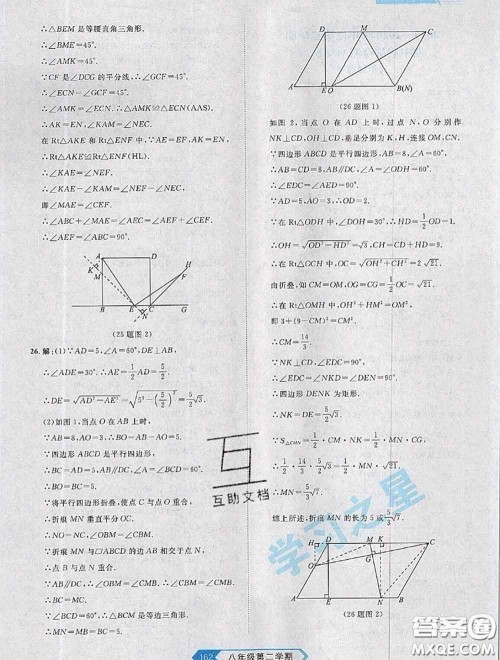 ∴△BEM 是等腰直角三角形.
∴∠BME=45°.
∵CF 是∠DCG 的平分线,∴∠FCG=45°.
∴∠ECN=∠FCG=45°.
∴∠AMK=∠ECN=45°.
∴△AMK≌△ECN(AAS).
∴AK=EN, ∠KAM=∠NEC.
在 Rt△AKE 和 Rt△ENF 中, ∵AE=EF,
∴Rt△AKE≌Rt△ENF(HL).
∴∠KAE=∠NEF.
∴∠KAE-∠KAM=∠NEF-∠NEC,
即∠MAE=∠CEF.
∴∠ABC+∠MAE=∠AEF+∠CEF.
∴∠AEF=∠ABC=90°.
A D H K M F B E C G N
(25题图2)
26. 解:(1)∵AD=5,∠A=60°,DE⊥AB,
∴∠ADE=30°. ∴AE=1/2AD=5/2.
∴DE=√(AD²-AE²)=√(5²-(5/2)²)=5/2√3.
(2)如图1,当点 O 在 AB 上时,
∵AB=8,AO=3,∴BO=5.
∵四边形 ABCD 是平行四边形,
∴BC=AD=5,AB∥CD,∠A=∠C=60°.
∴BO=BC=5.
∵将平行四边形折叠,使点 C 与点 O 重合,
∴折痕 MN 垂直平分 OC.
∵折痕 MN 与▱ABCD 的边 AB 相交于点 N,
∴点 B 与点 N 重合.
∵AB∥DC,∴∠OBM=∠CMB.
∵∠OBM=∠CBM,∴∠CBM=∠CMB.
D M C A E O B(N)
(26题图1)
如图 2,当点 O 在 AD 上时,过点 N 分别作
NK⊥CD,OH⊥CD,垂足分别为 K,H,连接 OM,CN.
∵四边形 ABCD 是平行四边形,AB=8,∠A=60°,
∴CD=AB=8,AB∥DC,∠A=∠ODH=60°.
∴∠EDC=∠AED=90°.
∵AD=5,AO=3,∴OD=2.
∵在 Rt△ODH 中,∠DOH=30°,∴HD=1/2OD=1.
∴OH=√(OD²-HD²)=√3.
∵在 Rt△OCH 中,∴OC=√(OH²+CH²)=2√21.
由折叠,知 CM=OM,OG=CG=1/2OC=√21.
∵在 Rt△OMH 中,∴OH²+MH²=OM².
即 3+(9-CM)²=CM².
∴CM=14/3.
∵NK⊥CD,∴∠NKD=90°.
∵∠DEN=∠EDC=90°,
∴四边形 DENK 为矩形.
∴NK=DE=5/2√3.
∵S△CMN=1/2·CM·NK=1/2·MN·CG,
∴1/2·14/3·5/2√3=1/2·MN·√21.
∴MN=5/3√7.
综上所述,折痕 MN 的长为 5 或5/3√7.
H D M K C O G A E N B
(26题图2)
互助文档
学习之星
162 八年级第二学期
答案圈
MXQE.COM